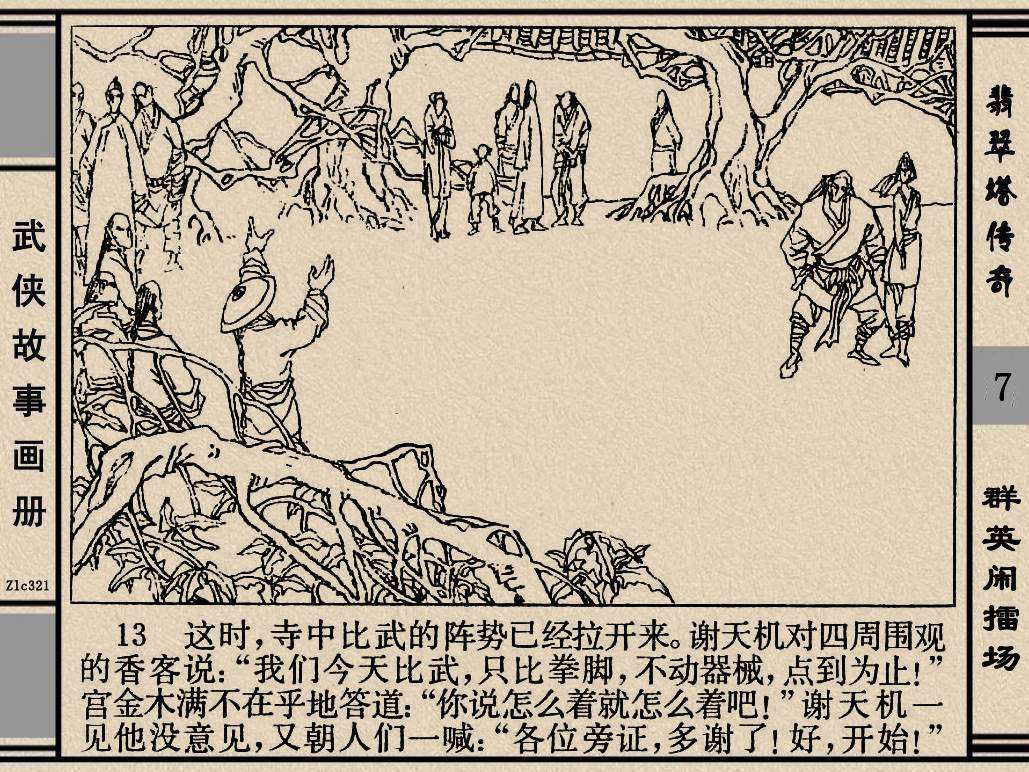 武侠故事画册
Zlc321
13 这时，寺中比武的阵势已经拉开来。谢天机对四周围观
的香客说：“我们今天比武，只比拳脚，不动器械，点到为止！”
宫金木满不在乎地答道：“你说怎么着就怎么着吧！”谢天机一
见他没意见，又朝人们一喊：“各位旁证，多谢了！好，开始！”
翡翠塔传奇
7
群英闹擂场